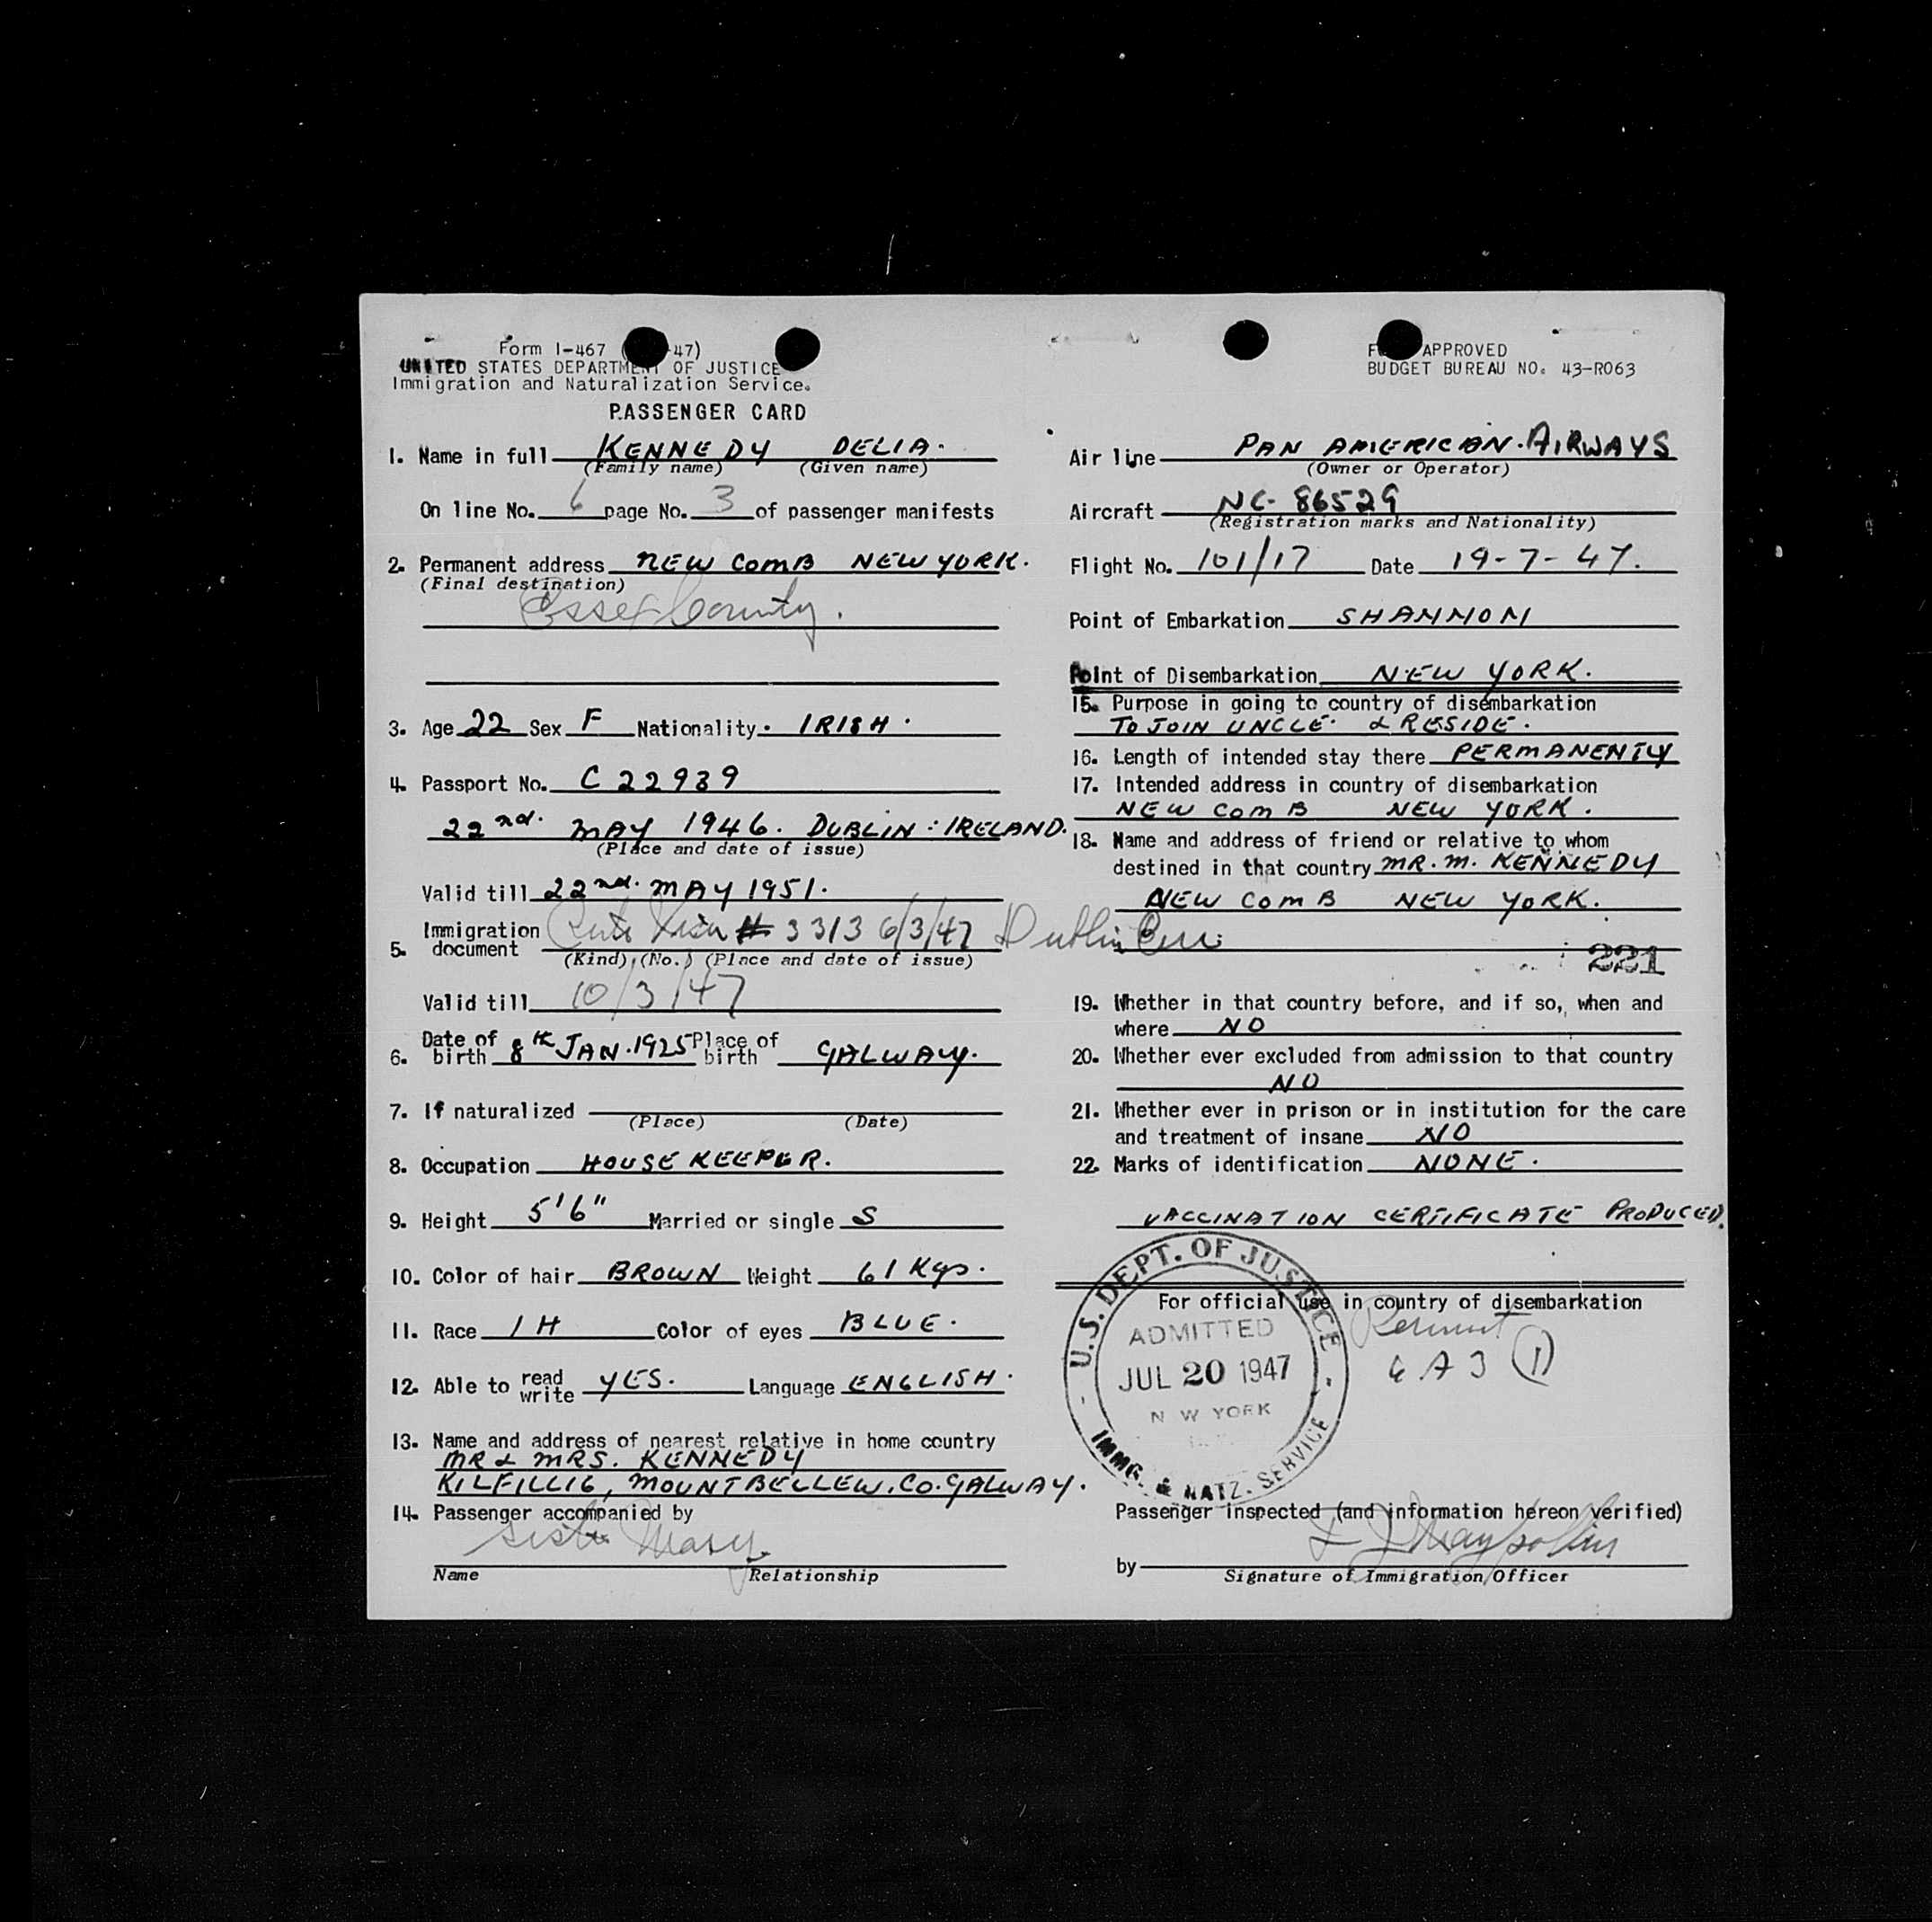 Form I-467 ( -47)
UNITED STATES DEPARTMENT OF JUSTICE
Immigration and Naturalization Service.
PASSENGER CARD
1. Name in full KENNEDY DELIA.
(Family name) (Given name)
On line No. 6 page No. 3 of passenger manifests
2. Permanent address NEW COMB NEW YORK.
(Final destination)
Essex County.
3. Age 22 Sex F Nationality. IRISH.
4. Passport No. C 22939
22nd. MAY 1946. DUBLIN: IRELAND.
(Place and date of issue)
Valid till 22nd. MAY 1951.
5. Immigration document # 3313 6/3/47 Dublin
(Kind) (No.) (Place and date of issue)
Valid till 10/3/47
6. Date of birth 8th JAN. 1925 Place of birth GALWAY.
7. If naturalized
(Place) (Date)
8. Occupation HOUSE KEEPER.
9. Height 5'6" Married or single S
10. Color of hair BROWN Weight 61 Kgs.
11. Race IH Color of eyes BLUE.
12. Able to read write YES. Language ENGLISH.
13. Name and address of nearest relative in home country
MR & MRS. KENNEDY
KILFILLIG, MOUNTBELLEW. CO. GALWAY.
14. Passenger accompanied by
sister Mary
Name Relationship
APPROVED
BUDGET BUREAU NO. 43-R063
Air line PAN AMERICAN. AIRWAYS
(Owner or Operator)
Aircraft NC- 86529
(Registration marks and Nationality)
Flight No. 101/17 Date 19-7-47.
Point of Embarkation SHANNON
Point of Disembarkation NEW YORK.
15. Purpose in going to country of disembarkation
TO JOIN UNCLE. & RESIDE.
16. Length of intended stay there PERMANENTLY
17. Intended address in country of disembarkation
NEW COMB NEW YORK.
18. Name and address of friend or relative to whom
destined in that country MR. M. KENNEDY
NEW COMB NEW YORK.
221
19. Whether in that country before, and if so, when and
where NO
20. Whether ever excluded from admission to that country
NO
21. Whether ever in prison or in institution for the care
and treatment of insane NO
22. Marks of identification NONE.
VACCINATION CERTIFICATE PRODUCED.
For official use in country of disembarkation
U.S. DEPT. OF JUSTICE
ADMITTED
JUL 20 1947
N W YORK
IMMG. & NATZ. SERVICE
(1)
Passenger inspected (and information hereon verified)
by
Signature of Immigration Officer